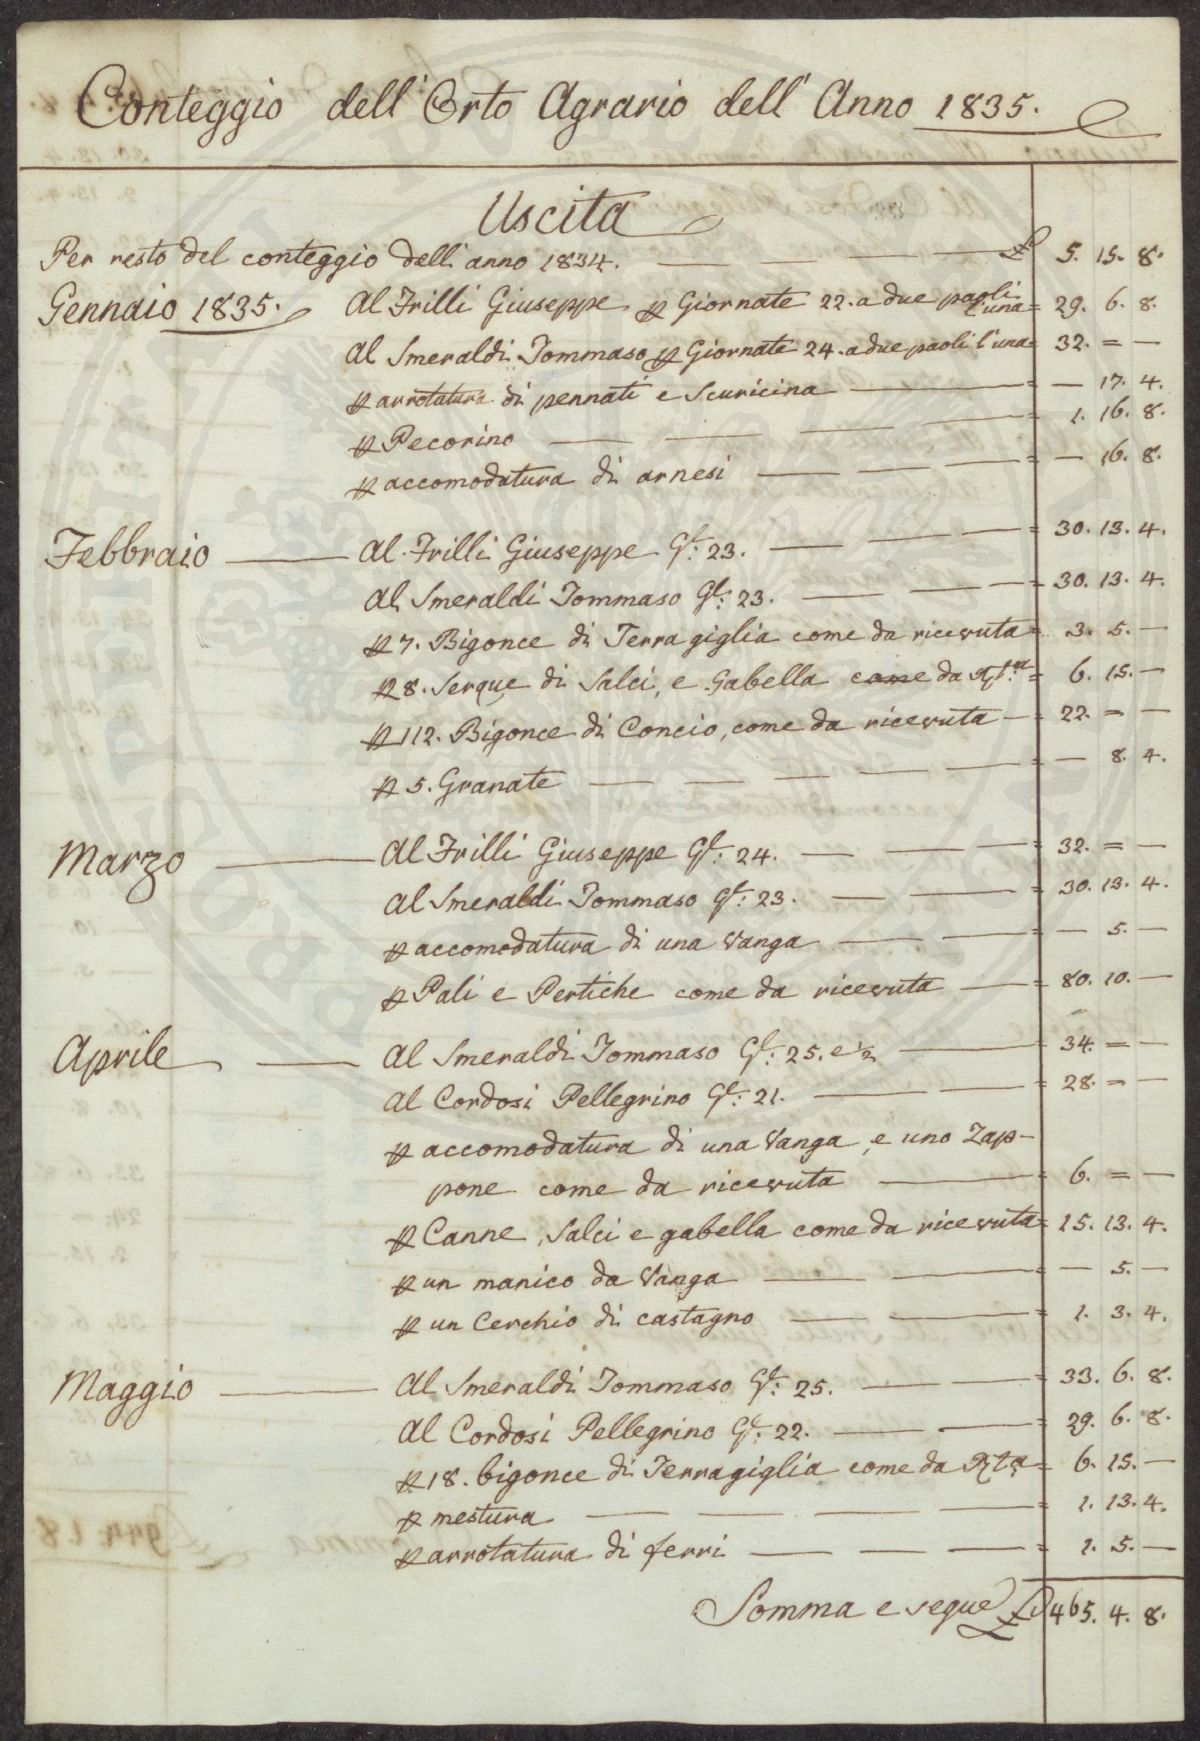 Conteggio dell'Orto Agrario dell'Anno 1835.
Uscita
Per resto del conteggio dell'anno 1834. £ 5. 15. 8.
Gennaio 1835. Al Frilli Giuseppe p Giornate 22. a due paoli l'una= 29. 6. 8.
Al Smeraldi Tommaso p Giornate 24. a due paoli l'una= 32. = —
p arrotatura di pennati e Scuricina = — 17. 4.
p Pecorino = 1. 16. 8.
p accomodatura di arnesi = — 16. 8.
Febbraio Al Frilli Giuseppe Gt: 23. = 30. 13. 4.
Al Smeraldi Tommaso Gt: 23. = 30. 13. 4.
p 7. Bigonce di Terra giglia come da ricevuta= 3. 5. —
p 8. Serque di Salci, e Gabella come da Rta= 6. 15. —
p 112. Bigonce di Concio, come da ricevuta = 22. = —
p 5. Granate = — 8. 4.
Marzo Al Frilli Giuseppe Gt: 24. = 32. = —
Al Smeraldi Tommaso Gt: 23. = 30. 13. 4.
p accomodatura di una Vanga = — 5. —
p Pali e Pertiche come da ricevuta = 80. 10. —
Aprile Al Smeraldi Tommaso Gt: 25. e ½ = 34. = —
Al Cordosi Pellegrino Gt: 21. = 28. = —
p accomodatura di una Vanga, e uno Zap-
pone come da ricevuta = 6. = —
p Canne, Salci e gabella come da ricevuta= 15. 13. 4.
p un manico da Vanga = — 5. —
p un Cerchio di castagno = 1. 3. 4.
Maggio Al Smeraldi Tommaso Gt: 25. = 33. 6. 8.
Al Cordosi Pellegrino Gt: 22. = 29. 6. 8.
p 18. bigonce di Terragiglia come da Rta= 6. 15. —
p mestura = 1. 13. 4.
p arrotatura di ferri = 1. 5. —
Somma e segue £ 465. 4. 8.